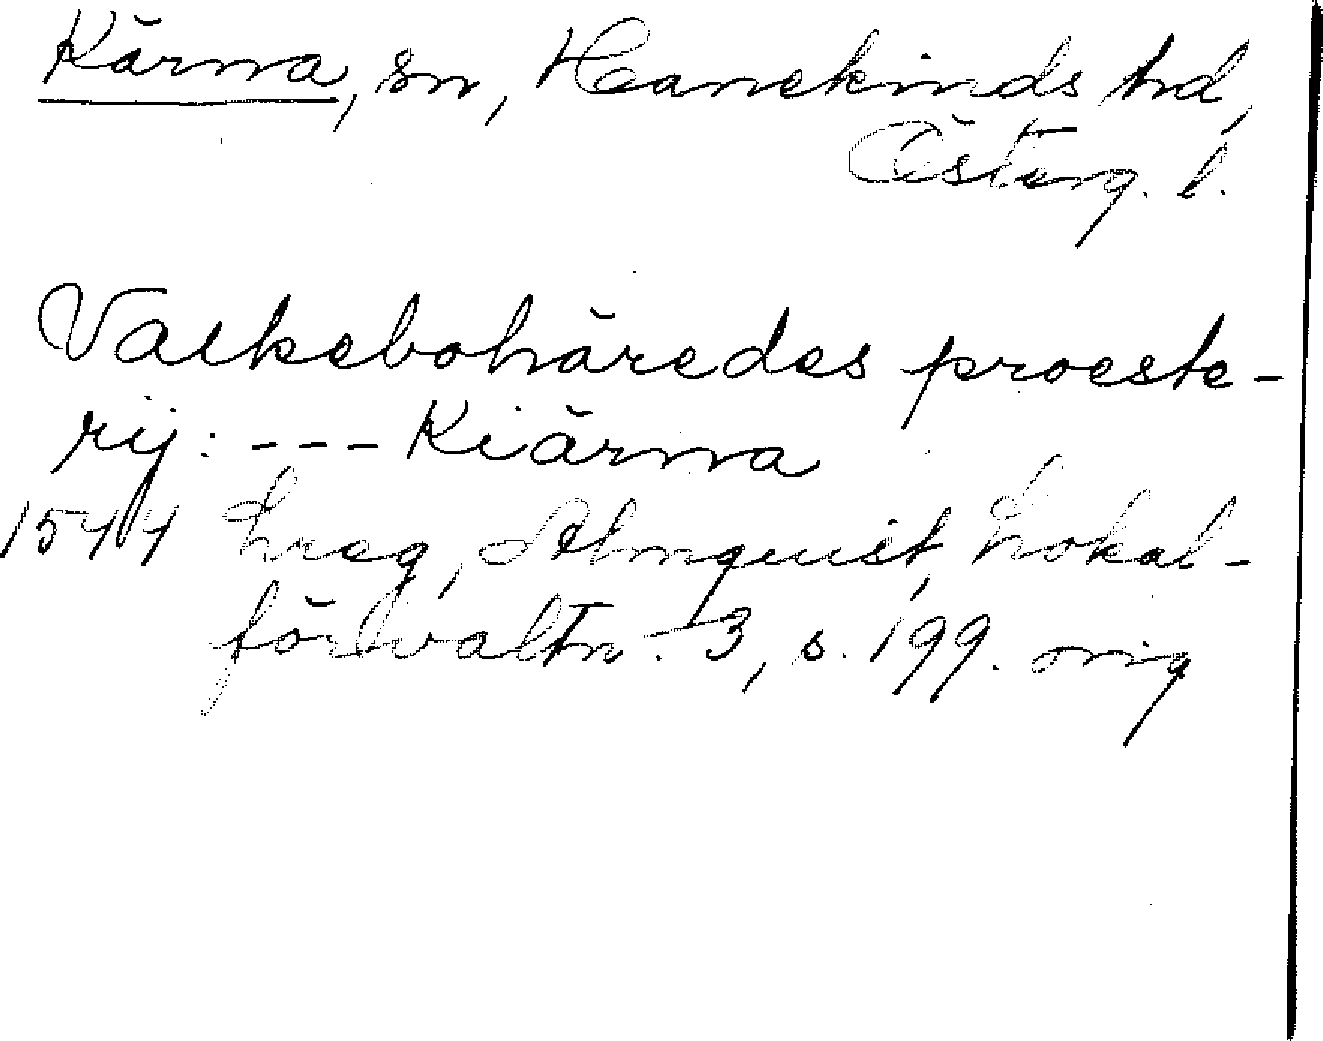 Kärna, sn, Hanekinds hd,
Österg. l.
Valkebohäredes proeste-
rij: --- Kiärna
1544 Lreg, Almquist, Lokal-
förvaltn. 3, s. 199. orig